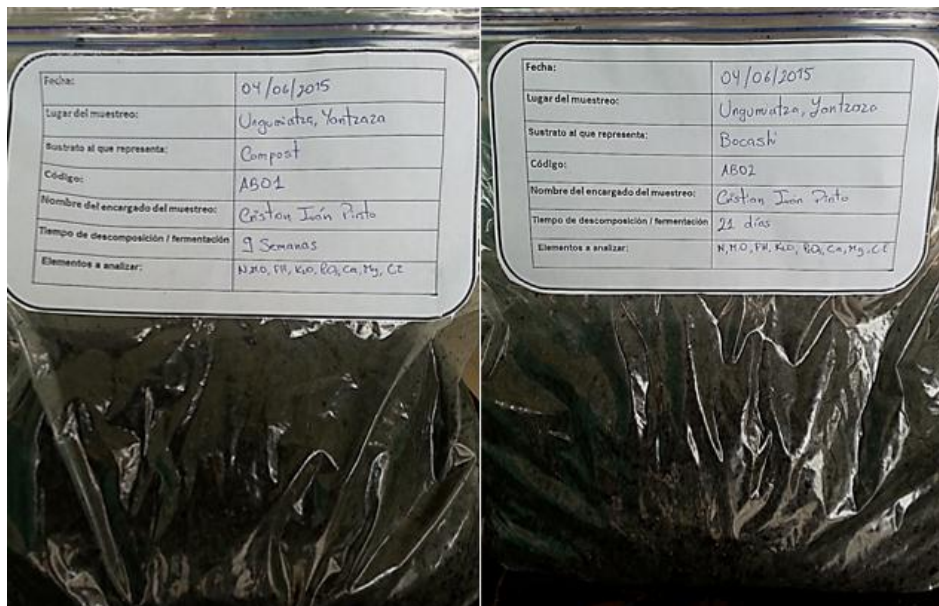 Fecha: 04/06/2015
Lugar del muestreo: Ungumiatza, Yantzaza
Sustrato al que representa: Compost
Código: AB01
Nombre del encargado del muestreo: Cristian Iván Pinto
Tiempo de descomposición / fermentación 9 Semanas
Elementos a analizar: N, M.O, PH, K2O, Ca, Mg, CE
Fecha: 04/06/2015
Lugar del muestreo: Ungumiatza, Yantzaza
Sustrato al que representa: Bocashi
Código: AB02
Nombre del encargado del muestreo: Cristian Iván Pinto
Tiempo de descomposición / fermentación 21 días
Elementos a analizar: N, M.O, PH, K2O, Ca, Mg, CE